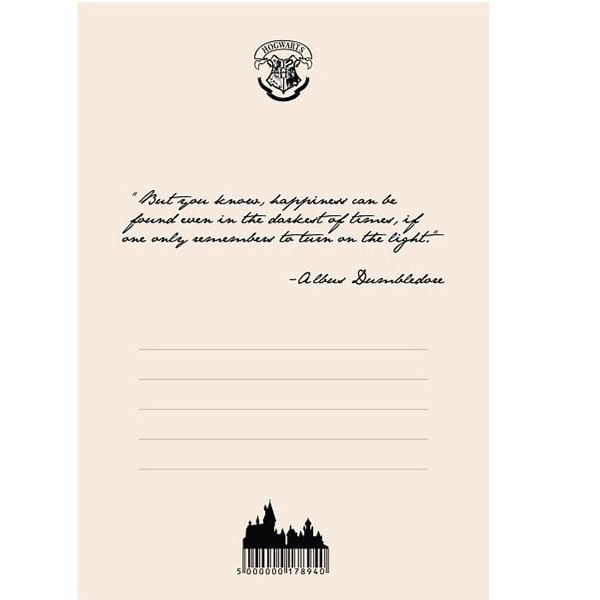 HOGWARTS
"But you know, happiness can be
found even in the darkest of times, if
one only remembers to turn on the light."
-Albus Dumbledore
5 000000 178940